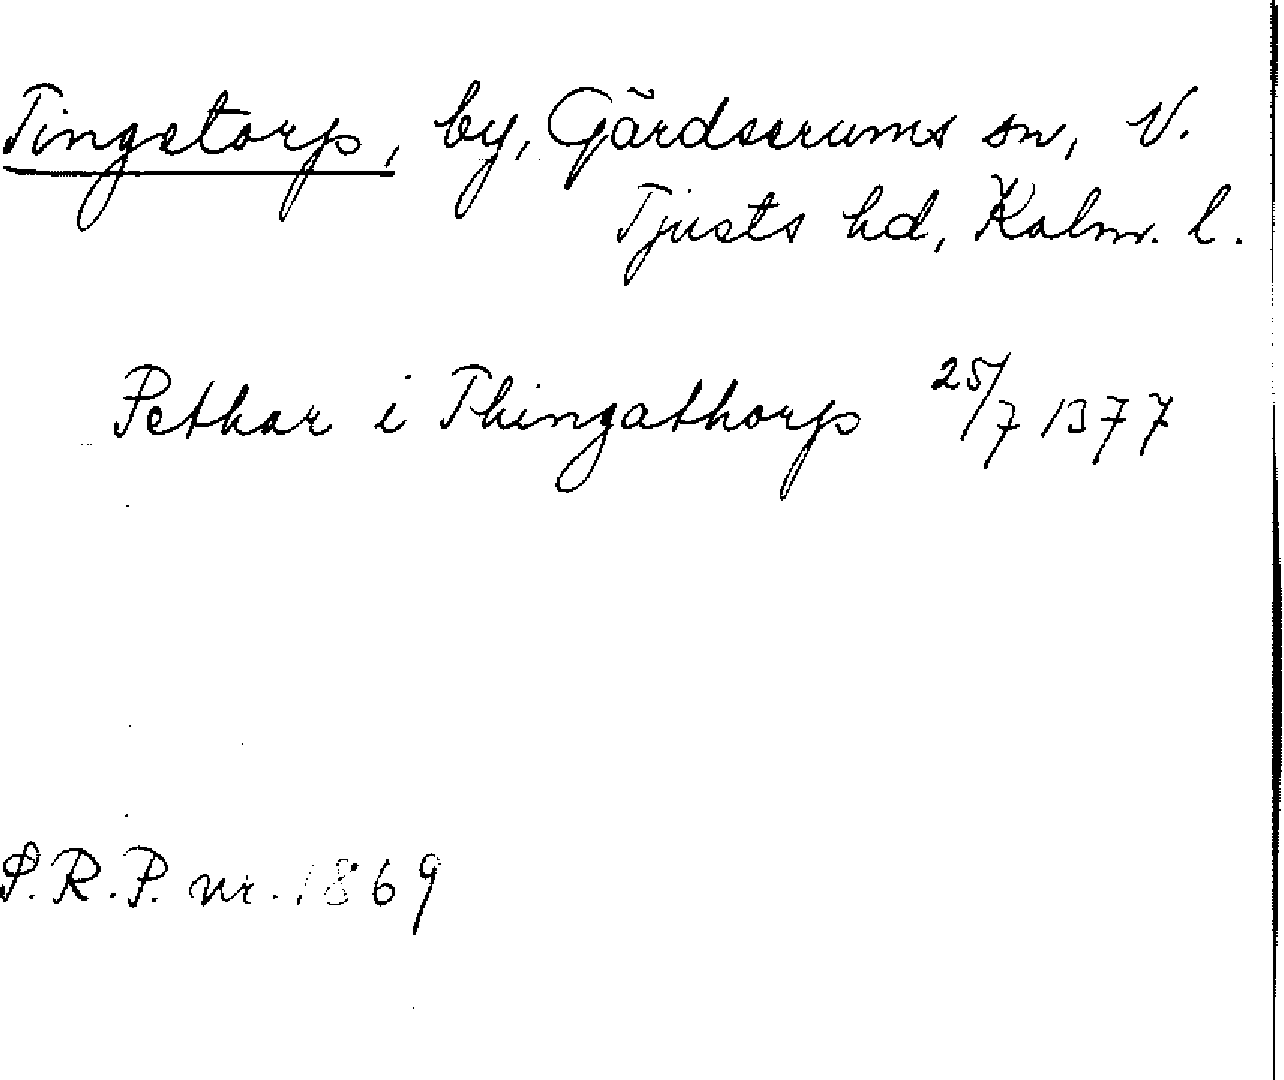 Tingstorp, by, Gärdserums sn, N.
Tjusts hd, Kalm. l.
Pethar i Thingathorp 25/7 1377
S.R.P. nr. 1869